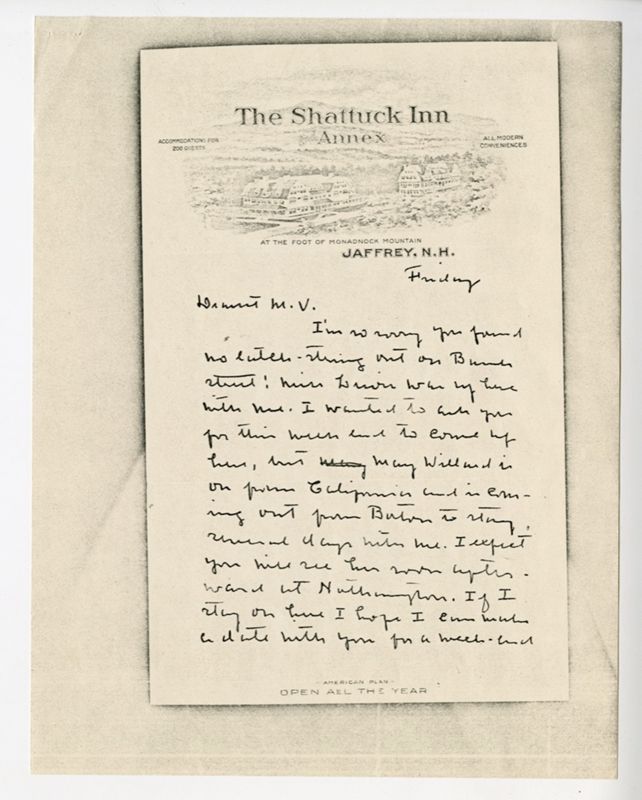 The Shattuck Inn
Annex
ACCOMMODATIONS FOR
200 GUESTS
ALL MODERN
CONVENIENCES
AT THE FOOT OF MONADNOCK MOUNTAIN
JAFFREY, N.H.
Friday
Dearest M.V.
I'm so sorry you found
no latch-string out on Bank
street! Miss Lewis was up here
with me. I wanted to ask you
for this week end to come up
here, but May Willard is
on from California and is com-
ing out from Boston to stay
several days with me. I expect
you will see her soon after-
ward at Northampton. If I
stay on here I hope I can make
a date with you for a week-end
- AMERICAN PLAN -
OPEN ALL THE YEAR